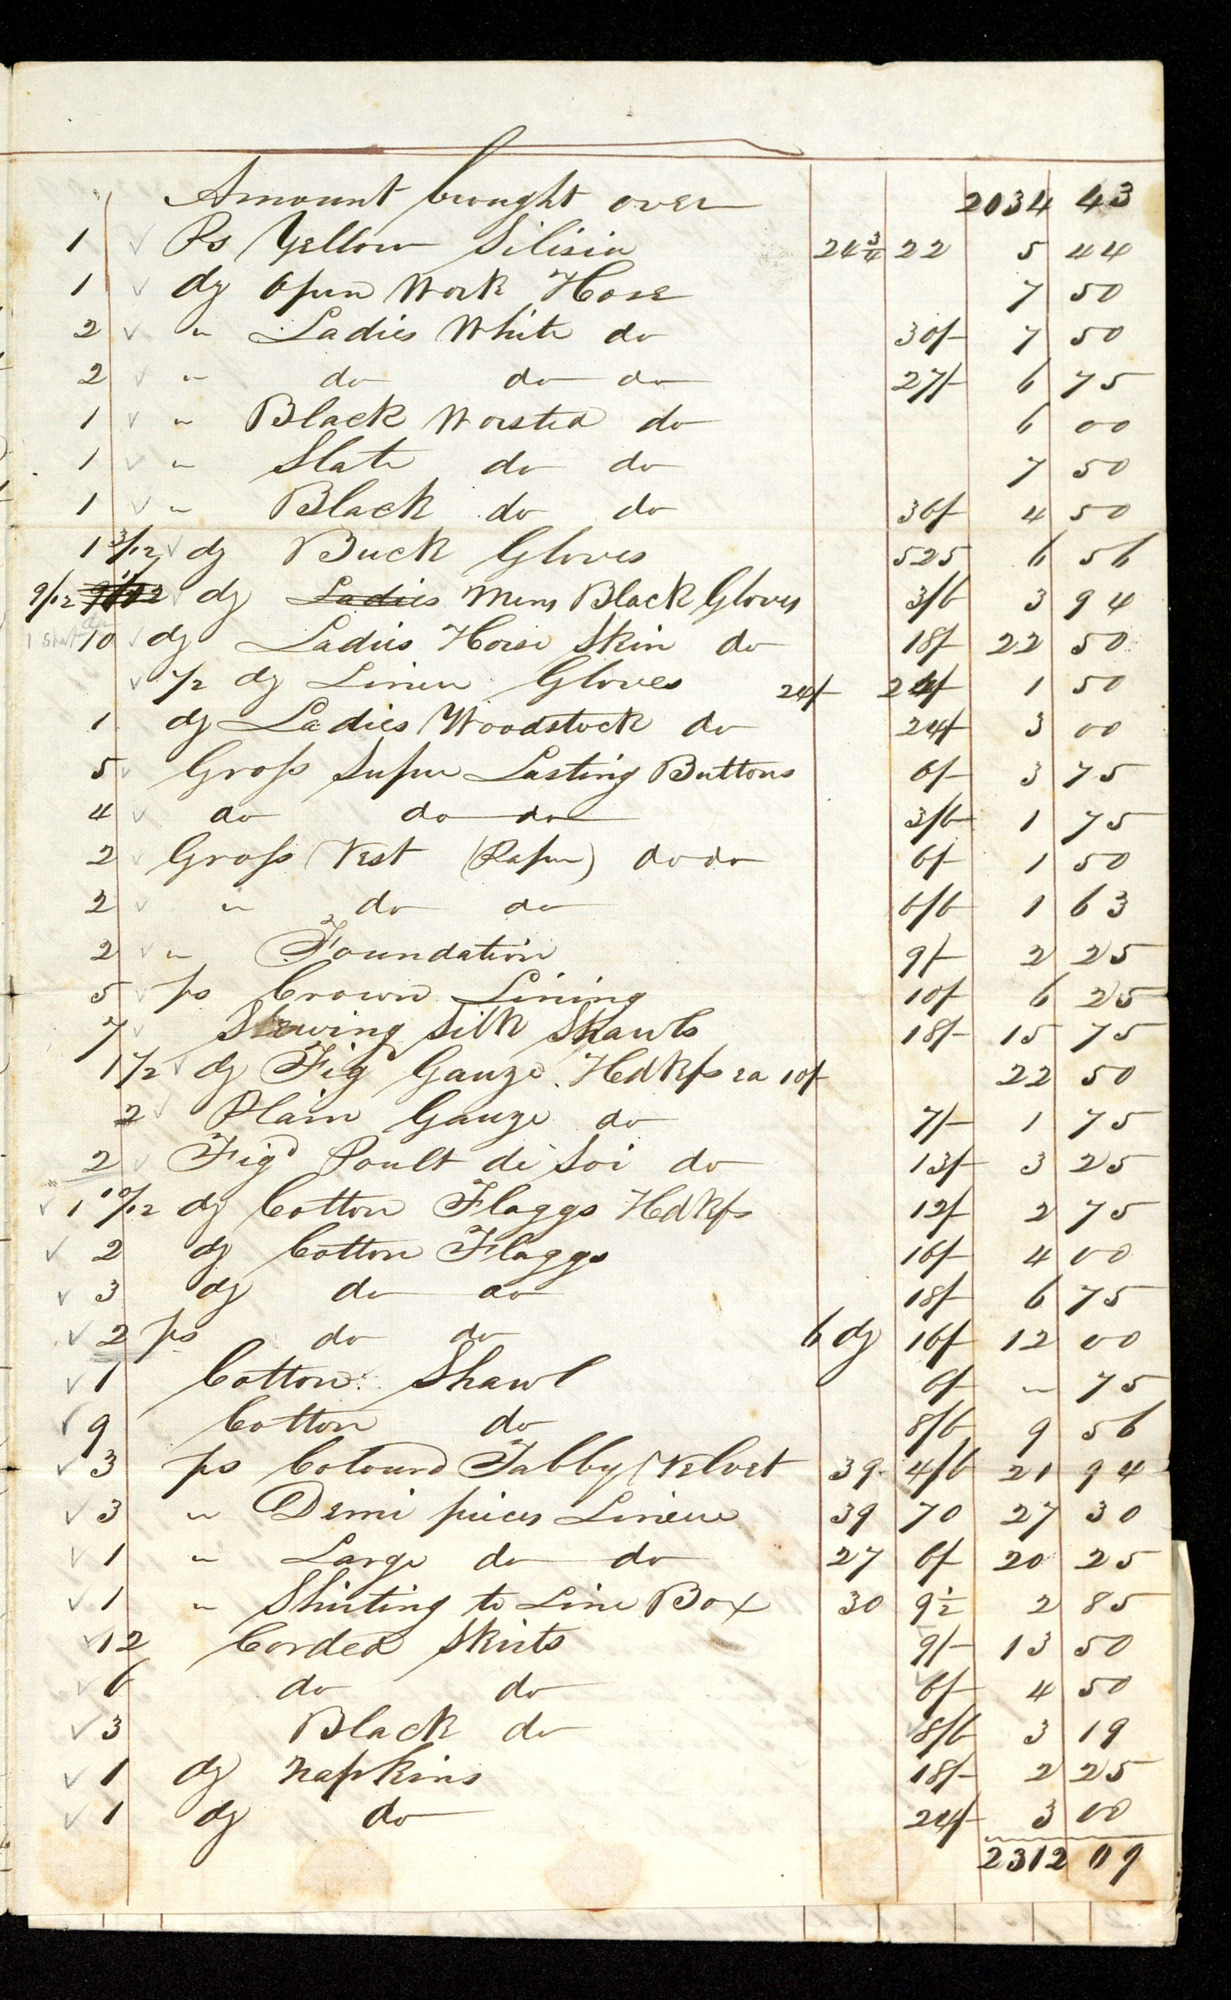 Amount brought over 2034 43
1 Ps Yellow Silisia 24 3/4 22 5 44
1 dz Open Work Hose 7 50
2 " Ladies White do 30/- 7 50
2 " do do do 27/- 6 75
1 " Black Worsted do 6 00
1 " Slate do do 7 50
1 " Black do do 36/- 4 50
1 3/12 dz Buck Gloves 525 6 56
9/12 dz Ladies Mens Black Gloves 3/6 3 94
10 dz Ladies Horse Skin do 18/- 22 50
1/2 dz Linen Gloves 24/- 24/- 1 50
1 dz Ladies Woodstock do 24/- 3 00
5 Gross Super Lasting Buttons 6/- 3 75
4 do do do 3/6 1 75
2 Gross Vest (Paper) do do 6/- 1 50
2 " do do 6/6 1 63
2 " Foundation 9/- 2 25
5 ps Crown Lining 10/- 6 25
7 Sewing Silk Shawls 18/- 15 75
1 1/2 dz Fig Gauze Hdkfs ea 10/- 22 50
2 Plain Gauze do 7/- 1 75
2 Figd Poult de Soi do 13/- 3 25
1 10/12 dz Cotton Flaggs Hdkfs 12/- 2 75
2 dz Cotton Flaggs 16/- 4 00
3 dz do do 18/- 6 75
2 ps do do 6 dz 16/- 12 00
1 Cotton Shawl 6/- " 75
9 Cotton do 8/6 9 56
3 ps Colourd Tabby Velvet 39 4/6 21 94
3 " Demi pieces Linen 39 70 27 30
1 " Large do do 27 6/- 20 25
1 " Shirting to Line Box 30 9 1/2 2 85
12 Corded Skirts 9/- 13 50
6 do do 6/- 4 50
3 Black do 8/6 3 19
1 dz Napkins 18/- 2 25
1 dz do 24/- 3 00
2312 09